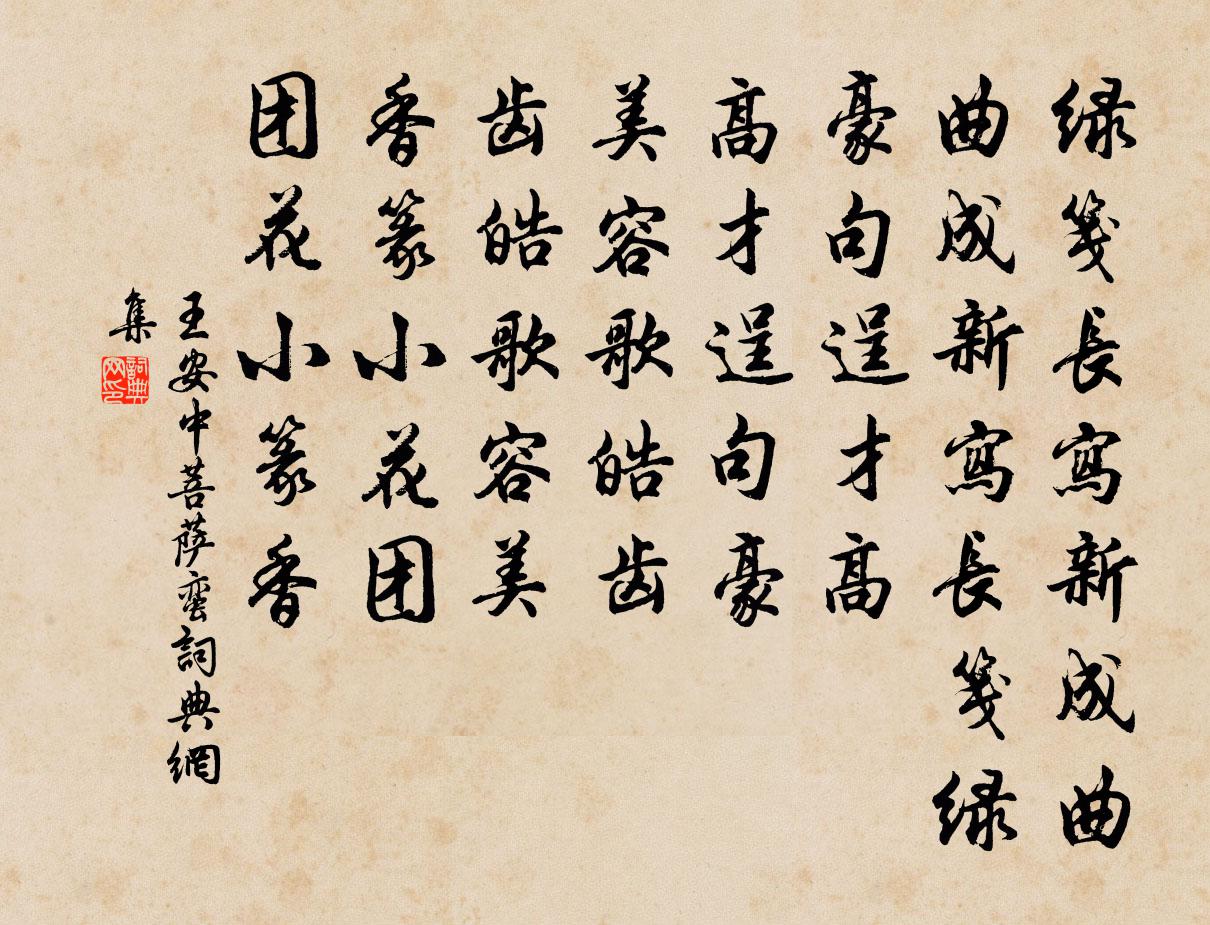 绿笺長寫新成曲
曲成新寫長笺绿
豪句逞才高
高才逞句豪
美容歌皓齿
齿皓歌容美
香篆小花团
团花小篆香
王安中菩萨蛮詞典網
集
詞典
网印